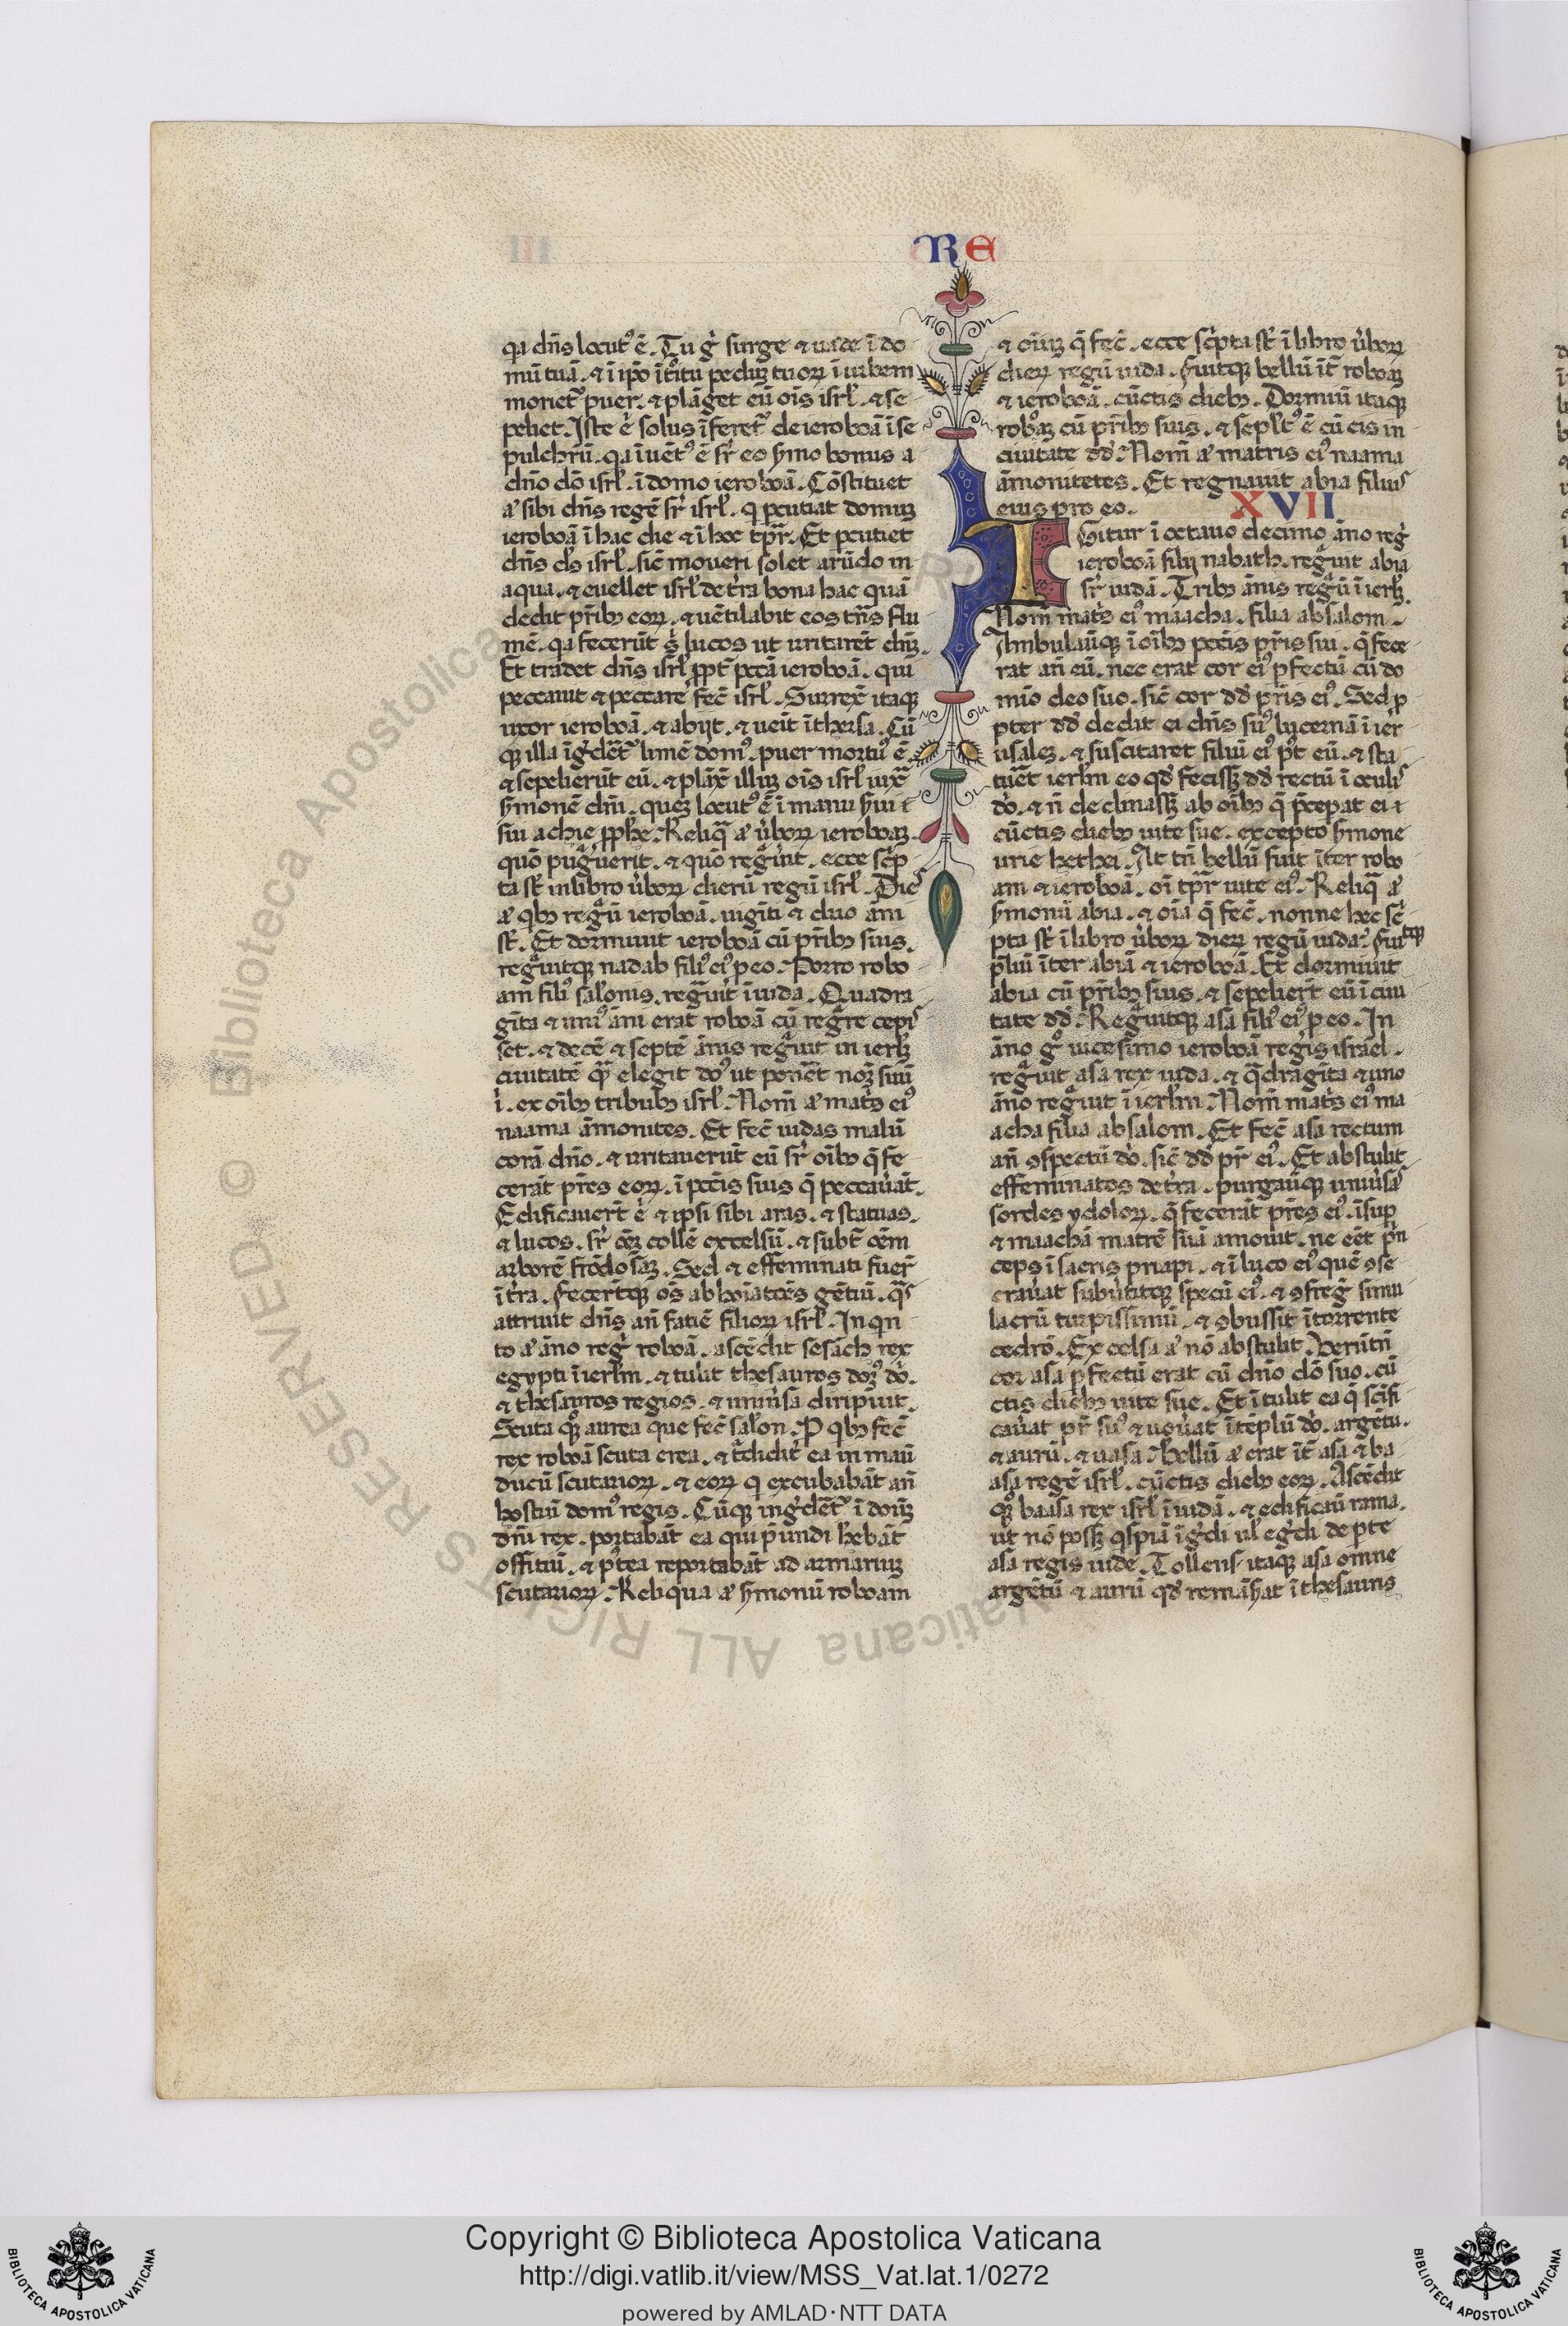 RE
qa dñs locut⁹ ē. Tu g̊ surge ⁊ uade ī do
mū tuā. ⁊ ī ip̄o ītͦitu pedūꝫ tuoꝝ ī urbem
morietͬ puer. ⁊ plāget eū ois̄ isrl̄. ⁊ se
peliet. Iste ē solus īferetͬ de ieroboā ī se
pulchrū. qa īuēt⁹ ē sr̄ eo ẜmo bonus a
dn̄o dō isrl̄. ī domo ieroboā. Cōstituet
aͧ sibi dn̄s regē sr̄ isrl̄. q̇ ꝑcutiat domuꝫ
ieroboā ī hac die ⁊ ī hoc tp̄r. Et ꝑcutiet
dn̄s ds̄ isrl̄. sič moueri solet arūdo in
aqua. ⁊ euellet isrl̄ de tͬra bona hac quā
dedit pr̄ibꝫ eoꝝ. ⁊ uētilabit eos trn̄s flu
mē. qa fecerūt s̓ lucos ut irritarēt dn̄ꝫ.
Et tradet dn̄s isrl̄ ꝓpt̄ pctā̄ ieroboā. qui
peccauit ⁊ peccare feč isrl̄. Surrex̄ itaqꝫ
uxor ieroboā. ⁊ abijt. ⁊ ueīt ī thersa. Cū
qꝫ illa īg̓det̄ͬ limē dom⁹. puer mortu⁹ ē.
⁊ sepelierūt eū. ⁊ plāx̄ illuꝫ ois̄ isrl̄ iuxͣ
ẜmonē dn̄i. queꝫ locut⁹ ē ī manu ẜui
sui achie ꝓph̄e. Reliqͣ aͧ u̓boꝝ ieroboaꝫ.
quō pugͣuerit. ⁊ quō regͣuīt. ecce sc̄p
ta st̄ in libro u̓boꝝ dierū regū isrl̄. Dieˢ
aͧ qͥbꝫ regͣū ieroboā. uigīti ⁊ duo ānī
st̄. Et dormiuit ieroboā cū pr̄ibꝫ suis.
regͣuitqꝫ nadab fili⁹ ei⁹ ꝑ eo. Porro robo
am fili⁹ sal̄onis. regͣuīt ī iuda. Quadra
gīta ⁊ uni⁹ āni erat roboā cū regͣre cepiˢ
set. ⁊ decē ⁊ septē ānis regͣuit in ierl̄ꝫ
ciuitatē q̄ꝫ elegit do⁹ ut ponēt nom̄ꝫ suū
ī. ex oībꝫ tribubꝫ isrl̄. Nom̄ aͧ matͬs ei⁹
naama āmonites. Et feč iudas malū
corā dn̄o. ⁊ irritauerūt eū sr̄ oībꝫ q̄ fe
cerāt pr̄es eoꝝ. ī pctīs suis q̄ peccauāt̄.
Edificauert̄ ē ⁊ ipsi sibi aras. ⁊ statuas.
⁊ lucos. sr̄ oēꝫ collē excelsū. ⁊ subt̄ oēm
arborē frōdosāꝫ. Sed ⁊ effeminati fuer̄
ī tͬra. fecertqꝫ oēs abhoīatoēs gētiū. qͣˢ
attriuit dn̄s an̄ fatiē filioꝝ isrl̄. In qn
to aͧ āno reg̓ roboā. ascēdit sesāch rex
egypti ī ierl̄m. ⁊ tulit thesauros domꝫ⁹ do̓.
⁊ thesauros regios. ⁊ uniu̓sa diripuit.
Scuta qͦꝫ aurea que feč sal̄on. Ꝑ qͥbꝫ feč
rex roboā scuta erea. ⁊ tͬdidit ea in manū
ducū scutarioꝝ. ⁊ eoꝝ q̇ excubabāt an̄
hostiū dom⁹ regis. Cūqꝫ ing̓det̄ͬ ī domūꝫ
dn̄i rex. portabāt ea qui p̄undi hēbāt
offitiū. ⁊ p̓tea reportabāt ad armariuꝫ
scutarioꝝ. Reliqua aͧ ẜmonū roboam
⁊ oīuꝫ q̄ feč. ecce sc̓pta st̄ ī libro u̓boꝝ
dieꝝ regū iuda. fuitqꝫ bellū īt̄ roboaꝫ
⁊ ieroboā. cūctis diebꝫ. Dormiuī itaqꝫ
roboaꝫ cū pr̄ibꝫ suis. ⁊ sepl̄t⁹ ē cū eis in
ciuitate dd̄. Nom̄ aͧ matris ei⁹ naama
āmonitetes. Et regnauit abia filiuˢ
eius pro eo. XVII
IGitur ī octauo decimo āno reg̓
ieroboā filij nabath. regͣuit abia
sr̄ iudā. Tribꝫ ānis regͣū ī ierl̄ꝫ.
Nom̄ matͬs ei⁹ maacha. filia absalom.
Ambulauqꝫ ī oībꝫ pctīs pr̄is sui. q̄ fece
rat an̄ eū. nec erat cor ei⁹ ꝑfectū cū do
mīo deo suo. sič cor dd̄ pr̄is ei⁹. Sed ꝓ
pter dd̄ dedit ei dn̄s su⁹ lucernā ī ier
usaleꝫ. ⁊ suscitaret filiū ei⁹ p̓t eū. ⁊ sta
tuēt ierl̄m eo qd̄ fecissꝫ dd̄ rectū ī oculiˢ
do̓. ⁊ n̄ declinassꝫ ab oībꝫ q̄ p̄cepat ei
cūctis diebꝫ uite sue. excepto ẜmone
urie hethei. At tn̄ bellū fuit īter robo
am ⁊ ieroboā. oī tp̄r uite ei⁹. Reliqͣ aͧ
ẜmonū abia. ⁊ oīa q̄ feč. nonne hec sc̄
pta st̄ ī libro u̓boꝝ dieꝝ regū iuda? fuitqꝫ
p̄liū īter abiā ⁊ ieroboā. Et dormiuit
abia cū pr̄ibꝫ suis. ⁊ sepeliert̄ eū ī ciui
tate dd̄. Regͣuitqꝫ asa fili⁹ ei⁹ ꝑ eo. In
āno gͦ uicesimo ieroboā regis israel.
regͣuit asa rex iuda. ⁊ qͣdragīta ⁊ uno
āno regͣuit ī ierl̄m. Nom̄ matͬs ei⁹ ma
acha filia absalom. Et feč asa rectum
an̄ ꝯspectū do̓. sič dd̄ pr̄ ei⁹. Et abstulit
effeminatos de tͬra. purgauqꝫ uniu̓saˢ
sordes ydoloꝝ. q̄ fecerāt pr̄es ei⁹. īsuꝑ
⁊ maachā matrē suā amouit. ne eēt pͥn
ceps ī sacris priapi. ⁊ ī luco ei⁹ quē ꝯse
crauāt subu̓titqꝫ specū ei⁹. ⁊ ꝯfreg̓ simu
lacrū turpissimū. ⁊ ꝯbussit ī torrente
cedrō. Excelsa aͧ nō abstulit. Uerūtn̄
cor asa ꝑfectū erat cū dn̄o dō suo. cū
ctis diebꝫ uite sue. Et ītulit ea q̄ scīfi
cauāt pr̄ su⁹ ⁊ uouāt ī tēplū do̓. argētū.
⁊ aurū. ⁊ uasa. Bellū aͧ erat īt̄ asā ⁊ ba
asa regē isrl̄. cūctis diebꝫ eoꝝ. Ascēdit
qͦꝫ baasa rex isrl̄ ī iudā. ⁊ edificau̇ rama.
ut nō possꝫ qͥspiā īg̓di ul̄ eg̓di de ꝑte
asa regis iude. Tollens itaqꝫ asa omne
argētū ⁊ aurū qd̄ remāserat ī thesauris
Copyright © Biblioteca Apostolica Vaticana
http://digi.vatlib.it/view/MSS_Vat.lat.1/0272
powered by AMLAD·NTT DATA